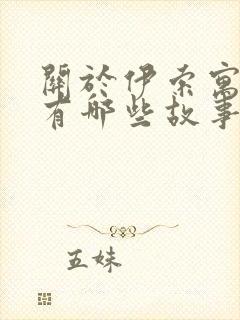 關於伊索寓
有哪些故事
五妹